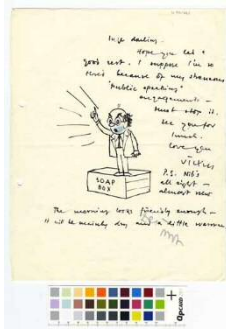 Inge darling -
Hope you had a
good rest. I suppose I'm so
tired because of my strenuous
"Public speaking"
engagements -
must stop it.
See you for
lunch.
Love you
VICKY
SOAP
BOX
P.S. Nib's
all right -
almost new
The morning looks friendly enough -
it'll be mainly dry and a little warmer